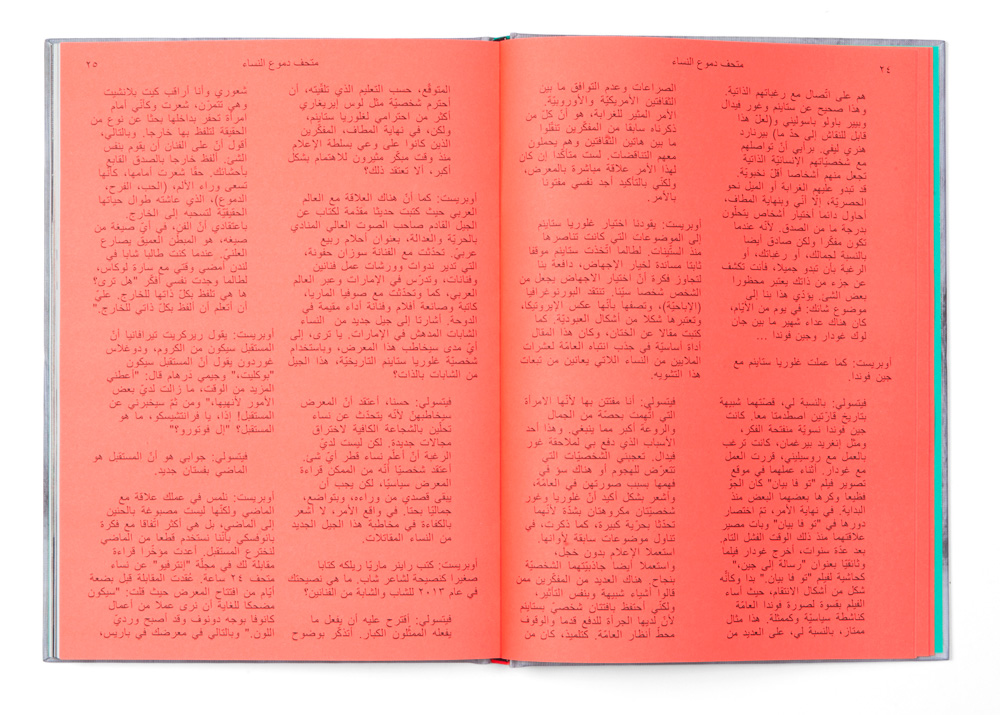 ٢٤
متحف دموع النساء
هم على اتّصال مع رغباتهم الذاتية.
وهذا صحيح عن ستاينم وغور فيدال
وبيير باولو باسوليني (ولعلّ هذا
قابل للنقاش إلى حدّ ما) بيرنارد
هنري ليفي. برأيي أنّ تواصلهم
مع شخصيّاتهم الإنسانيّة الذاتية
تجعل منهم أشخاصا أقلّ نخبويّة.
قد تبدو عليهم الغرابة أو الميل نحو
الحصريّة، إلّا أنّي وبنهاية المطاف،
أحاول دائما أختيار أشخاص يتحلّون
بدرجة ما من الصدق. لأنّه عندما
تكون مفكّرا ولكن صادق أيضا
بالنسبة لجمالك، أو رغباتك، أو
الرغبة بأن تبدو جميلا، فأنت تكشف
عن جزء من ذاتك يعتبر محظورا
بعض الشئ. يؤدّي هذا بنا إلى
موضوع شائك: في يوم من الأيّام،
كان هناك عداء شهير ما بين جان
لوك غودار وجين فوندا ...
أوبريست: كما عملت غلوريا ستاينم مع
جين فوندا.
فيتسولي: بالنسبة لي، قصّتهما شبيهة
بتاريخ قارّتين اصطدمتا معا. كانت
جين فوندا نسويّة منفتحة الفكر،
ومثل إنغريد بيرغمان، كانت ترغب
بالعمل مع روسيليني، قررت العمل
مع غودار. أثناء عملهما في موقع
تصوير فيلم "تو فا بيان" كان الجوّ
فظيعا وكرها بعضهما البعض منذ
البداية. في نهاية الأمر، تمّ اختصار
دورها في "تو فا بيان" وبات مصير
علاقتهما منذ ذلك الوقت الفشل التام.
بعد عدّة سنوات، أخرج غودار فيلما
وثائقيّا بعنوان "رسالة إلى جين"
كحاشية لفيلم "تو فا بيان" بدا وكأنّه
شكل من أشكال الانتقام، حيث أساء
الفيلم بقسوة لصورة فوندا العامّة
كناشطة سياسيّة وكممثلة. هذا مثال
ممتاز، بالنسبة لي، على العديد من
الصراعات وعدم التوافق ما بين
الثقافتين الأمريكيّة والأوروبيّة.
الأمر المثير للغرابة، هو أنّ كلّ من
ذكرناه سابقا من المفكّرين تنقّلوا
ما بين هاتين الثّقافتين وهم يحملون
معهم التناقضات. لست متأكّدا إن كان
لهذا الأمر علاقة مباشرة بالمعرض،
ولكنّي بالتأكيد أجد نفسي مفتونا
بالأمر.
أوبريست: يقودنا اختيار غلوريا ستاينم
إلى الموضوعات التي كانت تناصرها
منذ الستّينات. لطالما اتّخذت ستاينم موقفا
ثابتا مساندة لخيار الاجهاض، دافعة بنا
لتجاوز فكرة أنّ اختيار الاجهاض يجعل من
الشخص شخصا سيّئا. تنتقد البورنوغرافيا
(الإباحيّة)، وتصفها بأنّها عكس الإيروتيكا،
وتعتبرها شكلا من أشكال العبوديّة. كما
كتبت مقالا عن الختان، وكان هذا المقال
أداة أساسيّة في جذب انتباه العامّة لعشرات
الملايين من النساء اللاتي يعانين من تبعات
هذا التشويه.
فيتسولي: أنا مفتتن بها لأنّها الامرأة
التي اتّهمت بحصّة من الجمال
والروعة أكبر مما ينبغي. وهذا أحد
الأسباب الذي دفع بي لملاحقة غور
فيدال. تعجبني الشخصيّات التي
تتعرّض للهجوم أو هناك سوء في
فهمها بسبب صورتهن في العامّة.
وأشعر بشكل أكيد أنّ غلوريا وغور
شخصيّتان مكروهتان بشدّة لأنّهما
تحدّثا بحرّية كبيرة، كما ذكرت، في
تناول موضوعات سابقة لأوانها.
استعملا الإعلام بدون خجل،
واستعملا أيضا جاذبيّتهما الشخصيّة
بنجاح. هناك العديد من المفكّرين ممن
قالوا أشياء شبيهة وبنفس التأثير،
ولكنّي أحتفظ بافتتان شخصيّ بستاينم
لأنّ لديها الجرأة للدفع قدما والوقوف
محط أنظار العامّة. كتلميذ، كان من
متحف دموع النساء
٢٥
المتوقّع، حسب التعليم الذي تلقّيته، أن
أحترم شخصيّة مثل لوس إيريغاري
أكثر من احترامي لغلوريا ستاينم،
ولكن، في نهاية المطاف، المفكّرين
الذين كانوا على وعي بسلطة الإعلام
منذ وقت مبكّر مثيرون للاهتمام بشكل
أكبر، ألا تعتقد ذلك؟
أوبريست: كما أنّ هناك العلاقة مع العالم
العربي حيث كتبت حديثا مقدّمة لكتاب عن
الجيل القادم صاحب الصوت العالي المنادي
بالحرّية والعدالة، بعنوان أحلام ربيع
عربي. تحدّثت مع الفنانة سوزان حفونة،
التي تدير ندوات وورشات عمل فنانين
وفنّانات، وتدرّس في الامارات وعبر العالم
العربي، كما وتحدّثت مع صوفيا الماريا،
كاتبة وصانعة أفلام وفنّانة أداء مقيمة في
الدوحة. أشارتا إلى جيل جديد من النساء
الشابات المدهش في الإمارات. يا ترى، إلى
أيّ مدى سيخاطب هذا المعرض، وباستخدام
شخصيّة غلوريا ستاينم التاريخيّة، هذا الجيل
من الشابات بالذات؟
فيتسولي: حسنا، أعتقد أنّ المعرض
سيخاطبهنّ لأنّه يتحدّث عن نساء
تحلّين بالشجاعة الكافية لاختراق
مجالات جديدة. لكن ليست لديّ
الرغبة أنّ أعلّم نساء قطر أيّ شئ.
أعتقد شخصيّا أنّه من الممكن قراءة
المعرض سياسيّا، ولكن يجب أن
يبقى قصدي من وراءه، وبتواضع،
جماليّا بحتا. في واقع الأمر، لا أشعر
بالكفاءة في مخاطبة هذا الجيل الجديد
من النساء المقاتلات.
أوبريست: كتب راينر ماريّا ريلكه كتابا
صغيرا كنصيحة لشاعر شاب. ما هي نصيحتك
في عام ٢٠١٣ للشاب والشابة من الفنانين؟
فيتسولي: أقترح عليه أن يفعل ما
يفعله الممثّلون الكبار. أتذكّر بوضوح
شعوري وأنا أراقب كيت بلانشيت
وهي تتمرّن، شعرت وكأنّي أمام
امرأة تحفر بداخلها بحثا عن نوع من
الحقيقة لتلفظ بها خارجا. وبالتالي،
أقول أنّ على الفنان أن يقوم بنفس
الشئ. ألفظ خارجا بالصدق القابع
بأحشائك. حقّا شعرت أمامها، كأنّها
تسعى وراء الألم، (الحب، الفرح،
الدموع)، الذي عاشته طوال حياتها
الحقيقيّة لتسحبه إلى الخارج.
باعتقادي أنّ الفن، في أيّ صيغة من
صيغه، هو المبطّن العميق يصارع
العلنيّ. عندما كنت طالبا شابا في
لندن أمضي وقتي مع سارة لوكاس،
لطالما وجدت نفسي أفكّر "هل ترى؟
ها هي تلفظ بكلّ ذاتها للخارج. عليّ
أن أتعلّم أن ألفظ بكلّ ذاتي للخارج."
أوبريست: يقول ريركريت تيرافانيا أنّ
المستقبل سيكون من الكروم، ودوغلاس
غوردون يقول أنّ المستقبل سيكون
"بوكليت"، وجيمي درهام قال: "أعطني
المزيد من الوقت، ما زالت لديّ بعض
الأمور لأنهيها"، ومن ثمّ سيخبرني عن
المستقبل! إذا، يا فرانتشيسكو، ما هو
المستقبل؟ "إل فوتورو؟"
فيتسولي: جوابي هو أنّ المستقبل هو
الماضي بفستان جديد.
أوبريست: نلمس في عملك علاقة مع
الماضي ولكنّها ليست مصبوغة بالحنين
إلى الماضي، بل هي أكثر اتّفاقا مع فكرة
بانوفسكي بأننا نستخدم قطعا من الماضي
لنخترع المستقبل. أعدت مؤخّرا قراءة
مقابلة لك في مجلّة "إنترفيو" عن نساء
متحف ٢٤ ساعة. عُقدت المقابلة قبل بضعة
أيّام من إفتتاح المعرض حيث قلت: "سيكون
مضحكا للغاية أن نرى عملا من أعمال
كانوفا بوجه دونوف وقد أصبح ورديّ
اللون." وبالتالي في معرضك في باريس،